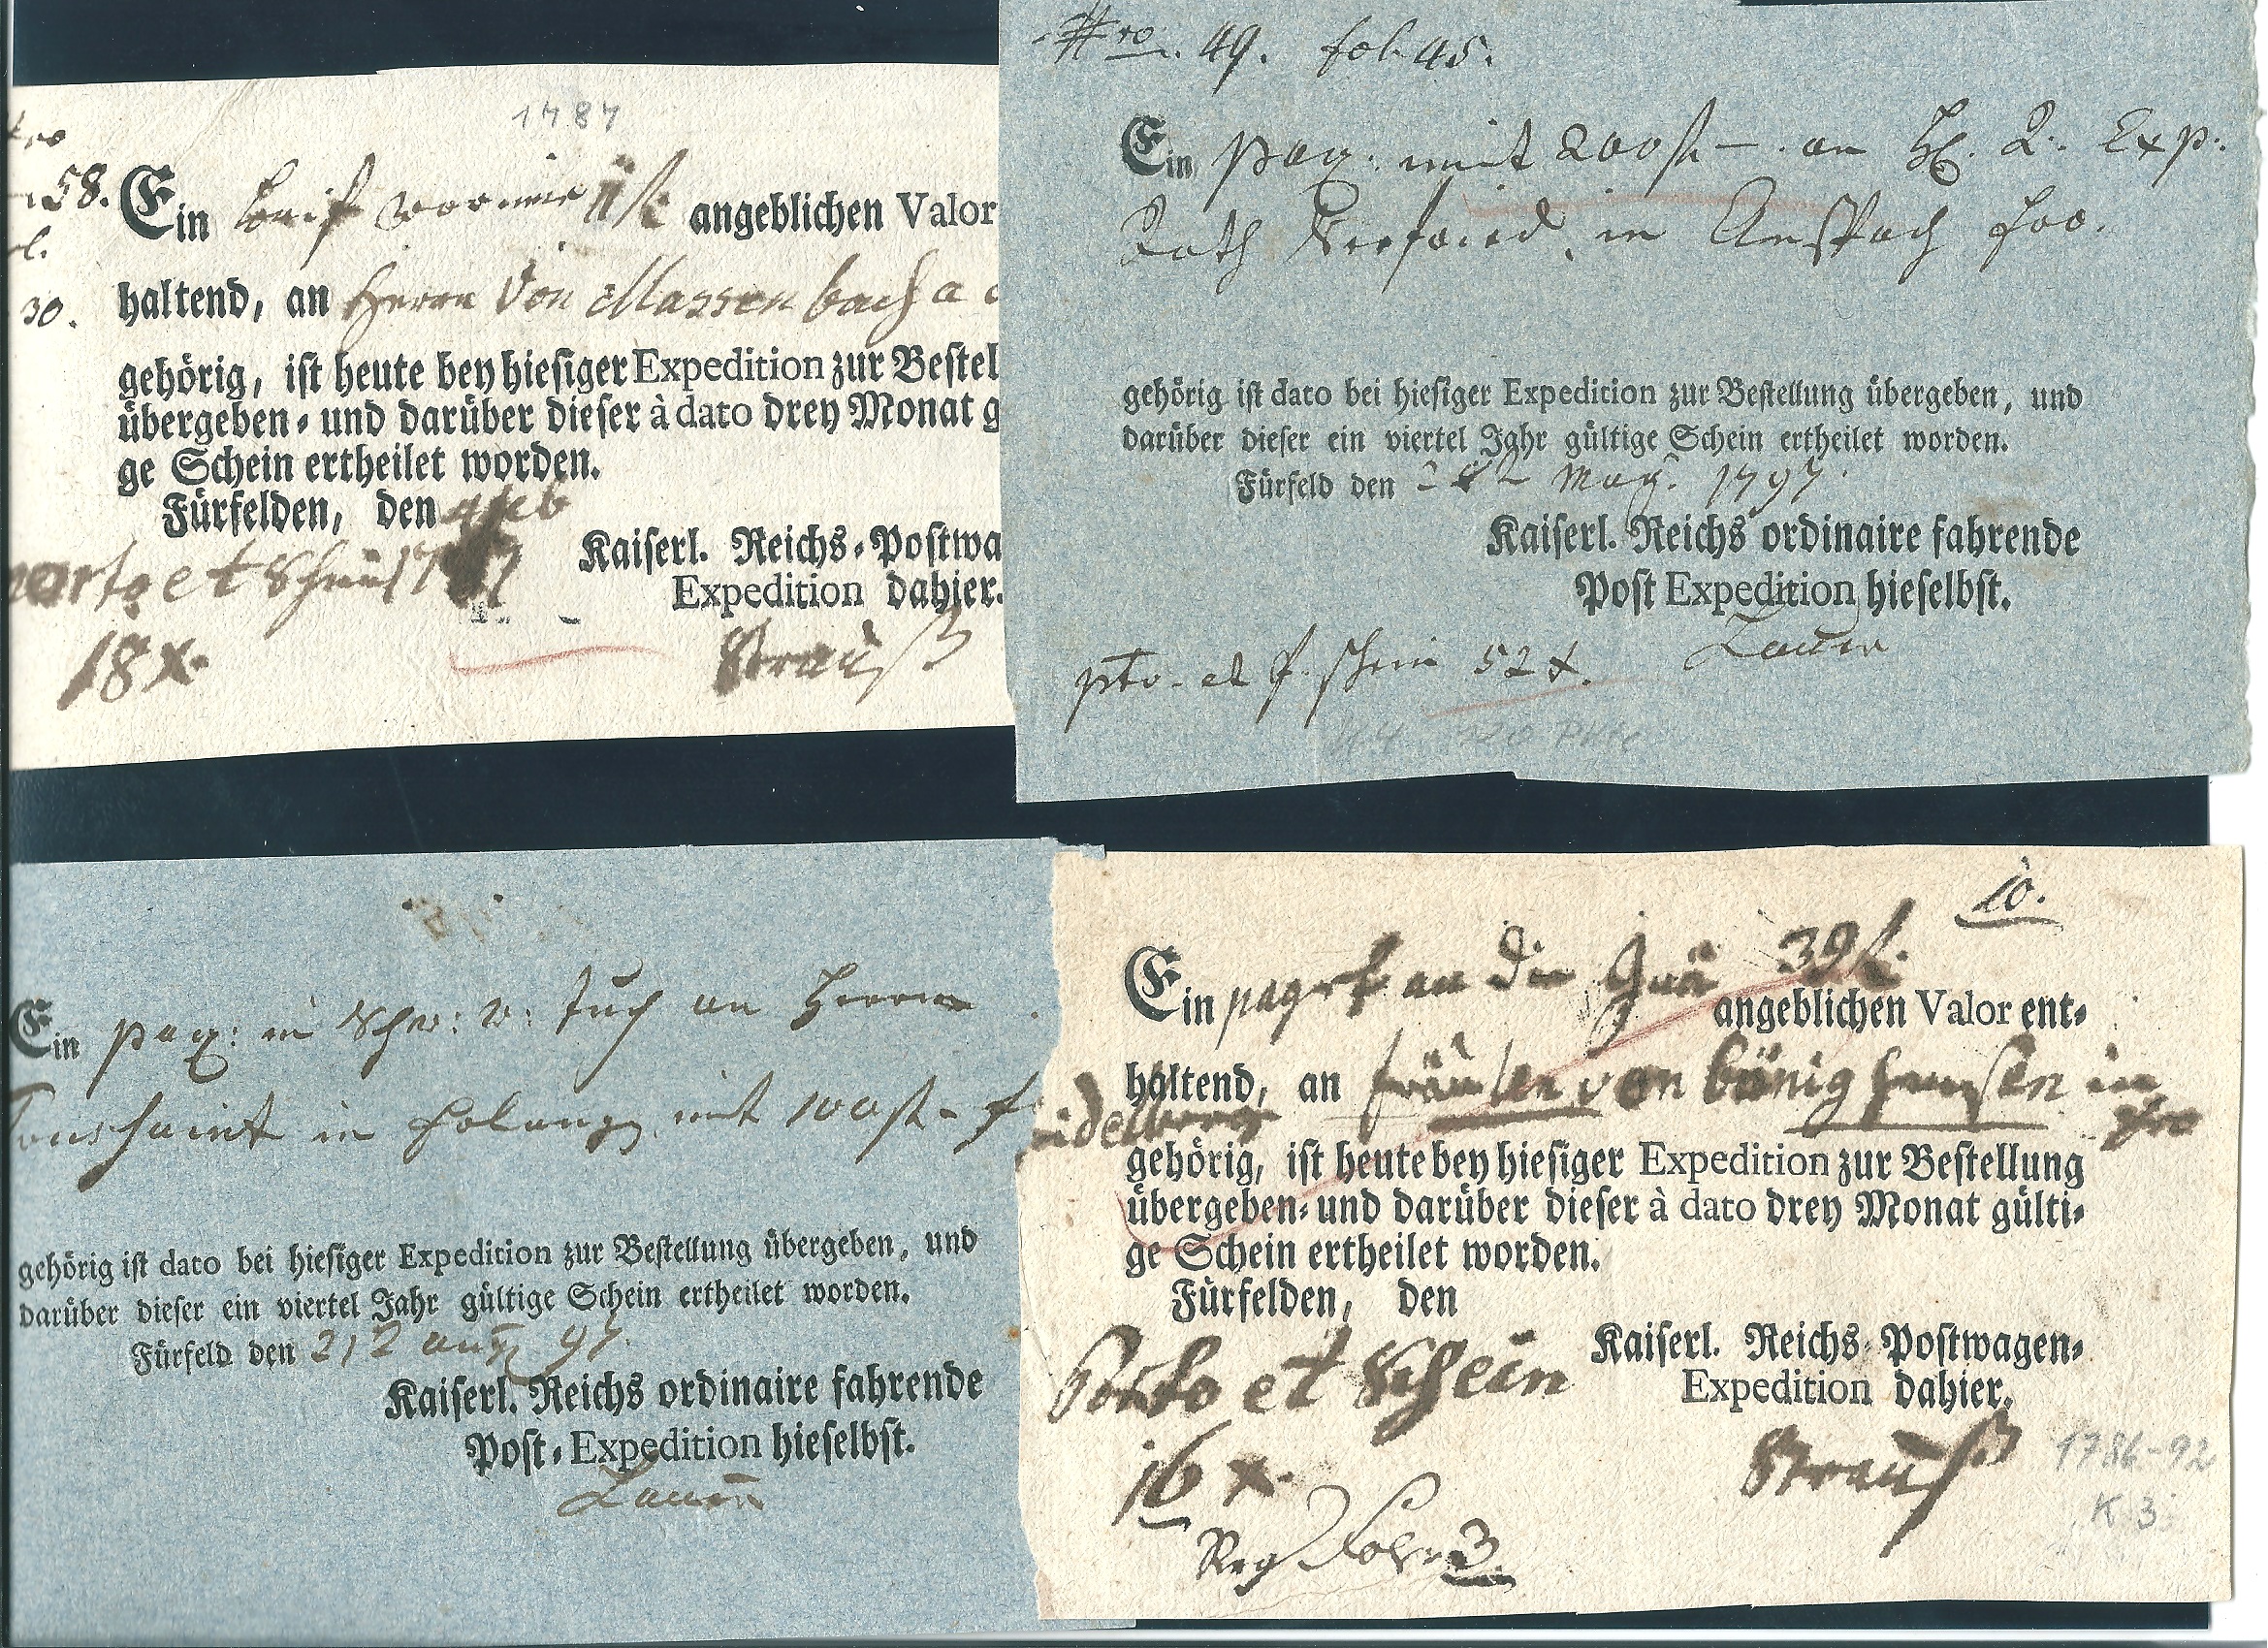 1787
58.
Ein angeblichen Valor
haltend, an Herrn Von Massenbach a
30.
gehörig, ist heute bey hiesiger Expedition zur Bestel
übergeben- und darüber dieser à dato drey Monat g
ge Schein ertheilet worden.
Fürfelden, den 4 feb
porto et Schein 1787
Kaiserl. Reichs-Postwa
Expedition dahier.
18 x.
Strauß
Nro. 49. fol. 45.
Ein paq: mit 200 fl. an H. Exp:
Rath in Anspach fco.
gehörig ist dato bei hiesiger Expedition zur Bestellung übergeben, und
darüber dieser ein viertel Jahr gültige Schein ertheilet worden.
Fürfeld den May. 1797.
Kaiserl. Reichs ordinaire fahrende
Post Expedition hieselbst.
pto. et f. schein 52 x.
Ein paq: in Tuch an Herrn
in mit 100 fl.
gehörig ist dato bei hiesiger Expedition zur Bestellung übergeben, und
darüber dieser ein viertel Jahr gültige Schein ertheilet worden.
Fürfeld den 212 aug 97.
Kaiserl. Reichs ordinaire fahrende
Post-Expedition hieselbst.
10.
Ein paqet an die 39 f.
angeblichen Valor ent-
haltend, an fräulen von bönighausen in
idelberg fro
gehörig, ist heute bey hiesiger Expedition zur Bestellung
übergeben- und darüber dieser à dato drey Monat gülti-
ge Schein ertheilet worden.
Fürfelden, den
Porto et Schein
Kaiserl. Reichs-Postwagen-
Expedition dahier.
16 x.
Strauß
1786-92
K 3
Reg Fol. 3.